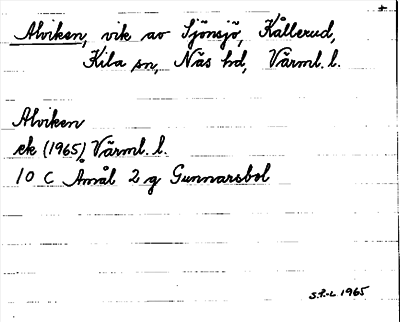 Alviken, vik av Sjönsjö, Kållerud,
Kila sn, Näs hd, Värml. l.
Alviken
ek (1965), Värml. l.
10 C Åmål 2 g Gunnarsbol
S.P.-L 1965